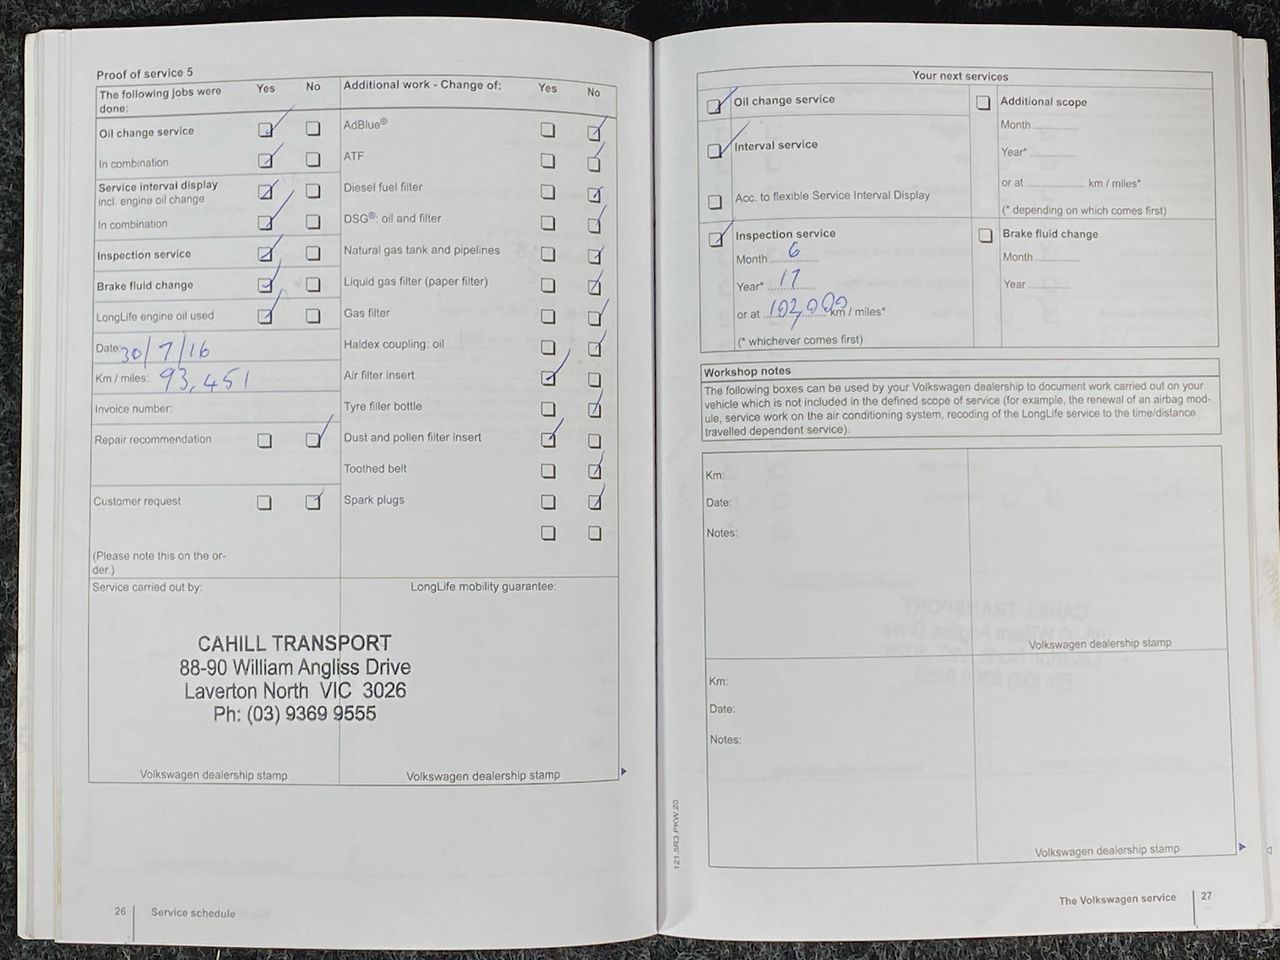 Proof of service 5
The following jobs were done: Yes No
Oil change service
In combination
Service interval display
incl. engine oil change
In combination
Inspection service
Brake fluid change
LongLife engine oil used
Date: 30/7/16
Km / miles: 93,451
Invoice number:
Repair recommendation
Customer request
(Please note this on the or-
der.)
Additional work - Change of: Yes No
AdBlue®
ATF
Diesel fuel filter
DSG®: oil and filter
Natural gas tank and pipelines
Liquid gas filter (paper filter)
Gas filter
Haldex coupling: oil
Air filter insert
Tyre filler bottle
Dust and pollen filter insert
Toothed belt
Spark plugs
Service carried out by:
LongLife mobility guarantee:
CAHILL TRANSPORT
88-90 William Angliss Drive
Laverton North VIC 3026
Ph: (03) 9369 9555
Volkswagen dealership stamp
Volkswagen dealership stamp
26 Service schedule
Your next services
Oil change service
Interval service
Acc. to flexible Service Interval Display
Additional scope
Month
Year*
or at km / miles*
(* depending on which comes first)
Inspection service
Month 6
Year* 17
or at 102,000 km / miles*
(* whichever comes first)
Brake fluid change
Month
Year
Workshop notes
The following boxes can be used by your Volkswagen dealership to document work carried out on your
vehicle which is not included in the defined scope of service (for example, the renewal of an airbag mod-
ule, service work on the air conditioning system, recoding of the LongLife service to the time/distance
travelled dependent service).
Km:
Date:
Notes:
Volkswagen dealership stamp
Km:
Date:
Notes:
Volkswagen dealership stamp
121.5R3.PKW.20
The Volkswagen service 27